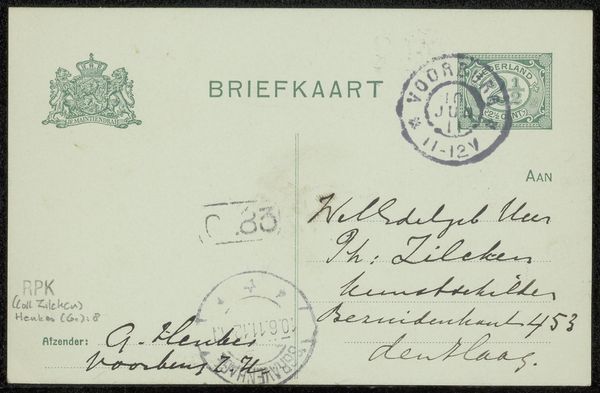 JE MAINTIENDRAI
BRIEFKAART
NEDERLAND
2½ CENT
VOORBURG
10
JUN
11
11-12V
AAN
WelEdelgeb Heer
Ph: Zilcken
Kunstschilder
Bezuidenhout 453
den Haag.
C 83
RPK
(coll Zilcken)
Henkes (G.): 8
Afzender: G. Henkes
Voorburg Z.H.
10.6.11.12
'S-GRAVENHAGE